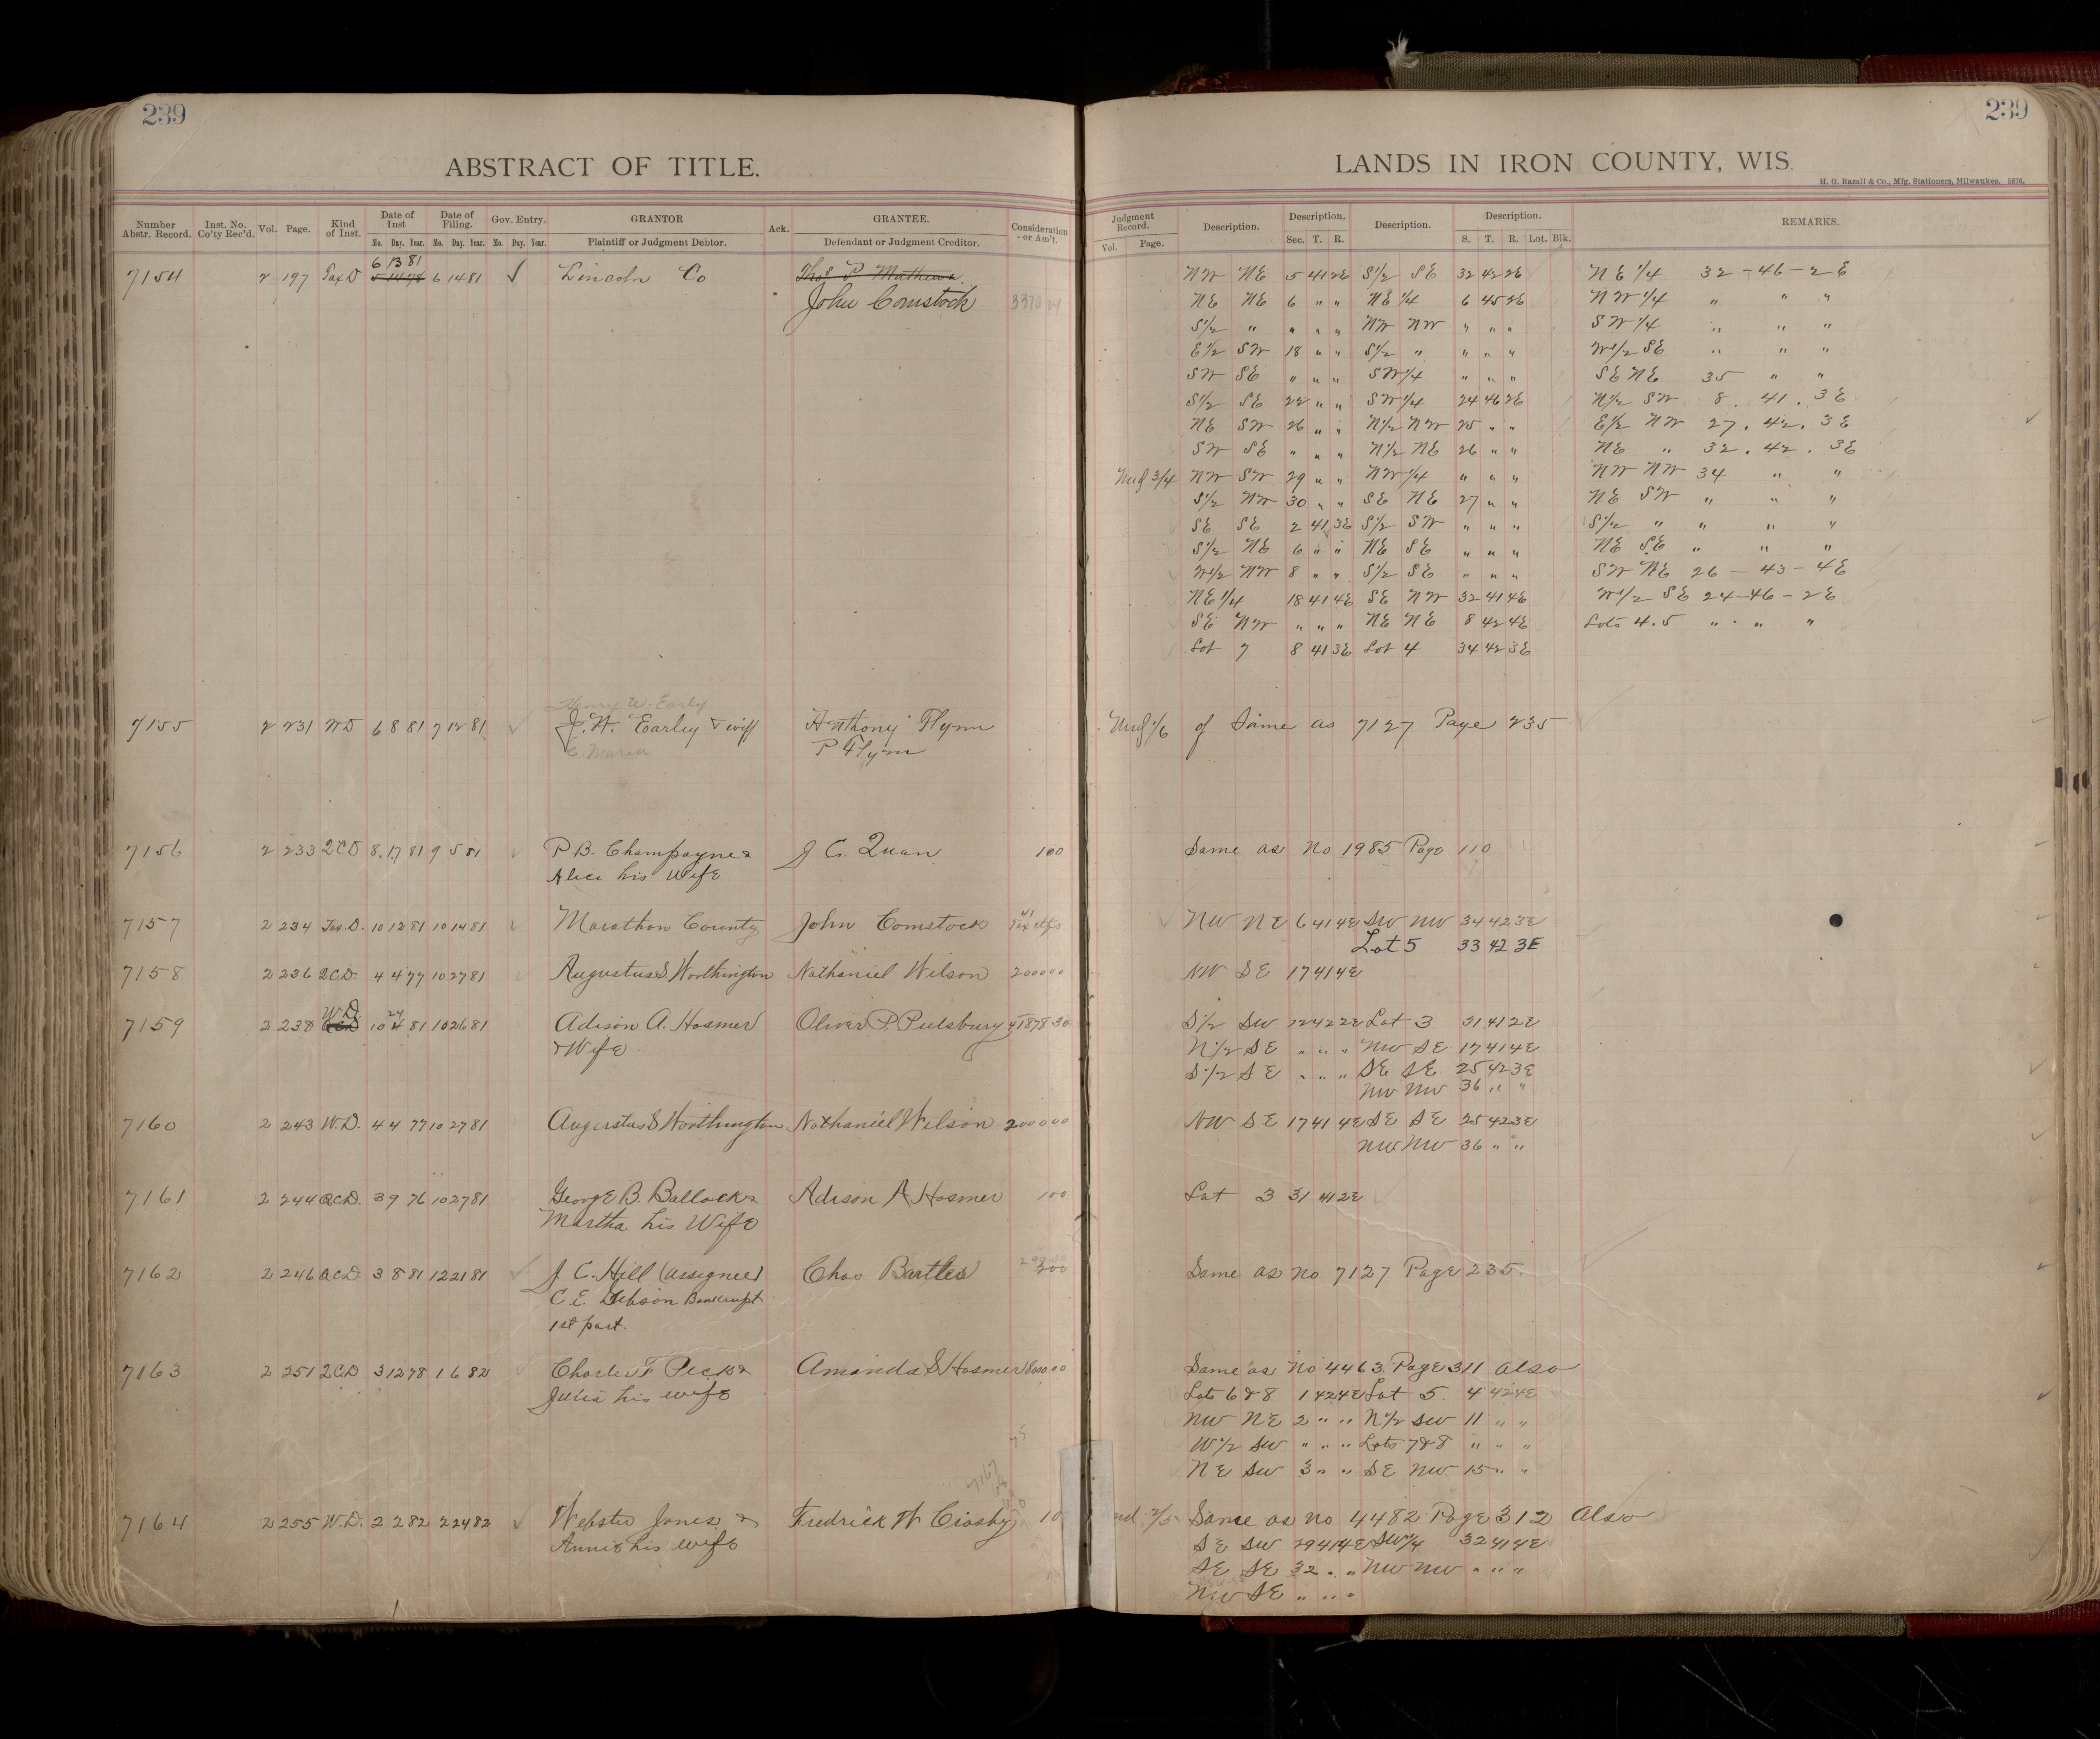 239
ABSTRACT OF TITLE.
Number Abstr. Record. Inst. No. Co'ty Rec'd. Vol. Page. Kind of Inst. Date of Inst Mo. Day. Year. Date of Filing. Mo. Day. Year. Gov. Entry. Mo. Day. Year. GRANTOR Plaintiff or Judgment Debtor. Ack. GRANTEE. Defendant or Judgment Creditor. Consideration or Am't.
6 13 81
7154 2 197 Tax D 5 14 78 6 14 81 ✓ Lincoln Co Thos P Mathews
John Comstock 3370
Henry W. Early
7155 2 231 WD 6 8 81 7 12 81 ✓ J. W. Earley & wiff Anthony Flynn
E. Maria P Flynn
7156 2 233 2CD 8 17 81 9 5 81 P. B. Champayne & J C. Quan 100
Alice his Wife
7157 2 234 Tax D. 10 12 81 10 14 81 Marathon County John Comstock 41
7158 2 236 2C.D. 4 4 77 10 27 81 Augustus S Worthington Nathaniel Wilson 2000 00
W.D. 24
7159 2 238 QCD 10 4 81 10 26 81 Adison A. Hosmer Oliver P. Pilsbury 41878 30
& Wife
7160 2 243 W.D. 4 4 77 10 27 81 Augustus S Worthington Nathaniel Wilson 2000 00
7161 2 244 QCD. 3 9 76 10 27 81 George B. Ballock & Adison A Hosmer 100
Martha his Wife
7162 2 246 QCD 3 8 81 12 21 81 ✓ J. C. Hill (assignee) Chas Bartles 200
C. E. Gibson Bankrupt
1st part.
7163 2 251 2CD 3 12 78 1 6 82 Charles F Peck & Amanda S Hosmer 1800 00
Julia his wife
75
7167
7164 2 255 W.D. 2 2 82 2 24 82 ✓ Webster Jones & Fredrick W Crosby 10
Annie his wife
239
LANDS IN IRON COUNTY, WIS.
H. G. Razall & Co., Mfg. Stationers, Milwaukee. 5876.
Judgment Record. Vol. Page. Description. Description. Sec. T. R. Description. Description. S. T. R. Lot. Blk. REMARKS.
NW NE 5 41 2E S1/2 SE 32 42 2E NE 1/4 32 - 46 - 2 E
NE NE 6 " " NE 1/4 6 45 2E NW 1/4 " " "
S1/2 " " " " NW NW " " " SW 1/4 " " "
E1/2 SW 18 " " S1/2 " " " " W1/2 SE " " "
SW SE " " " SW1/4 " " " SE NE 35 " "
S1/2 SE 22 " " SW1/4 24 46 2E N1/2 SW 8. 41. 3E
NE SW 26 " " N1/2 NW 25 " " E1/2 NW 27. 42. 3E
SW SE " " " N1/2 NE 26 " " NE " 32. 42. 3E
Und 3/4 NW SW 29 " " NW 1/4 " " " NW NW 34 " "
S1/2 NW 30 " " SE NE 27 " " NE SW " " "
SE SE 2 41 3E S1/2 SW " " " S1/2 " " " "
S1/2 NE 6 " " NE SE " " " NE SE " " "
W1/2 NW 8 " " S1/2 SE " " " SW NE 26 - 43 - 4E
NE 1/4 18 41 4E SE NW 32 41 4E W1/2 SE 24 - 46 - 2E
SE NW " " " NE NE 8 42 4E Lots 4.5 " " "
Lot 7 8 41 3E Lot 4 34 42 3E
Und 1/6 of Same as 7127 Page 235
Same as No 1985 Page 110
NW NE 6 41 4E SW NW 34 42 3E
Lot 5 33 42 3E
NW SE 17 41 4E
S1/2 SW 12 42 2E Lot 3 31 41 2E
N1/2 SE " " " NW SE 17 41 4E
S1/2 SE " " " SE SE 25 42 3E
NW NW 36 " "
NW SE 17 41 4E SE SE 25 42 3E
NW NW 36 " "
Lot 3 31 41 2E
Same as No 7127 Page 235.
Same as No 4463 Page 311 also
Lots 6 & 8 1 42 4E Lot 5. 4 42 4E
NW NE 2 " " N1/2 SW 11 " "
W1/2 SW " " " Lots 7 & 8 " " "
NE SW 3 " " SE NW 15 " "
nd. 2/5 Same as No 4482 Page 312 Also
SE SW 29 41 4E SW1/4 32 41 4E
SE SE 32 " " NW NW " " "
NW SE " " "